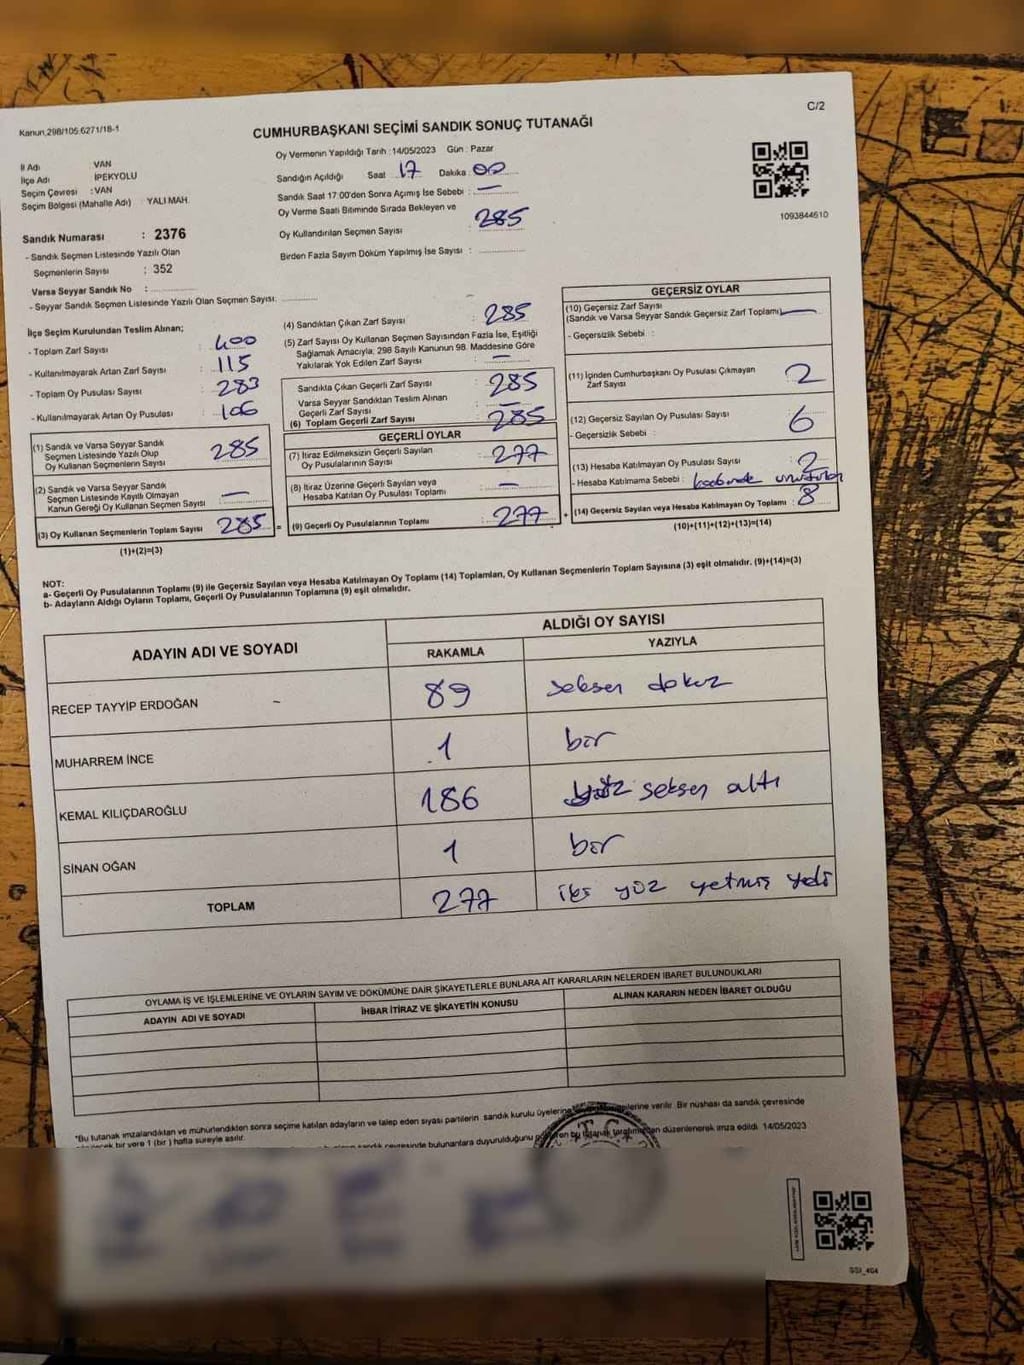 C/2
Kanun,298/105.6271/18-1
CUMHURBAŞKANI SEÇİMİ SANDIK SONUÇ TUTANAĞI
Oy Vermenin Yapıldığı Tarih : 14/05/2023 Gün : Pazar
İl Adı VAN
İlçe Adı İPEKYOLU
Seçim Çevresi : VAN
Seçim Bölgesi (Mahalle Adı) : YALI MAH.
Sandığın Açıldığı Saat 17 Dakika 00
Sandık Saat 17.00'den Sonra Açımış İse Sebebi : —
Oy Verme Saati Bitiminde Sırada Bekleyen ve
Oy Kullandırılan Seçmen Sayısı 285
Birden Fazla Sayım Döküm Yapılmış İse Sayısı :
1093844610
Sandık Numarası : 2376
- Sandık Seçmen Listesinde Yazılı Olan
Seçmenlerin Sayısı : 352
Varsa Seyyar Sandık No :
- Seyyar Sandık Seçmen Listesinde Yazılı Olan Seçmen Sayısı:
İlçe Seçim Kurulundan Teslim Alınan;
- Toplam Zarf Sayısı : 400
- Kullanılmayarak Artan Zarf Sayısı : 115
- Toplam Oy Pusulası Sayısı : 283
- Kullanılmayarak Artan Oy Pusulası : 106
(1) Sandık ve Varsa Seyyar Sandık
Seçmen Listesinde Yazılı Olup
Oy Kullanan Seçmenlerin Sayısı : 285
(2) Sandık ve Varsa Seyyar Sandık
Seçmen Listesinde Kayıtlı Olmayan
Kanun Gereği Oy Kullanan Seçmen Sayısı : —
(3) Oy Kullanan Seçmenlerin Toplam Sayısı 285 =
(1)+(2)=(3)
(4) Sandıktan Çıkan Zarf Sayısı : 285
(5) Zarf Sayısı Oy Kullanan Seçmen Sayısından Fazla İse, Eşitliği
Sağlamak Amacıyla; 298 Sayılı Kanunun 98. Maddesine Göre
Yakılarak Yok Edilen Zarf Sayısı : —
Sandıkta Çıkan Geçerli Zarf Sayısı : 285
Varsa Seyyar Sandıktan Teslim Alınan
Geçerli Zarf Sayısı : —
(6) Toplam Geçerli Zarf Sayısı : 285
GEÇERLİ OYLAR
(7) İtiraz Edilmeksizin Geçerli Sayılan
Oy Pusulalarının Sayısı : 277
(8) İtiraz Üzerine Geçerli Sayılan veya
Hesaba Katılan Oy Pusulası Toplamı : —
(9) Geçerli Oy Pusulalarının Toplamı : 277 +
GEÇERSİZ OYLAR
(10) Geçersiz Zarf Sayısı
(Sandık ve Varsa Seyyar Sandık Geçersiz Zarf Toplamı) —
- Geçersizlik Sebebi :
(11) İçinden Cumhurbaşkanı Oy Pusulası Çıkmayan
Zarf Sayısı : 2
(12) Geçersiz Sayılan Oy Pusulası Sayısı : 6
- Geçersizlik Sebebi :
(13) Hesaba Katılmayan Oy Pusulası Sayısı : 2
- Hesaba Katılmama Sebebi : kabinde unutulan
(14) Geçersiz Sayılan veya Hesaba Katılmayan Oy Toplamı : 8
(10)+(11)+(12)+(13)=(14)
NOT:
a- Geçerli Oy Pusulalarının Toplamı (9) ile Geçersiz Sayılan veya Hesaba Katılmayan Oy Toplamı (14) Toplamları, Oy Kullanan Seçmenlerin Toplam Sayısına (3) eşit olmalıdır. (9)+(14)=(3)
b- Adayların Aldığı Oyların Toplamı, Geçerli Oy Pusulalarının Toplamına (9) eşit olmalıdır.
ADAYIN ADI VE SOYADI ALDIĞI OY SAYISI
RAKAMLA YAZIYLA
RECEP TAYYİP ERDOĞAN 89 seksen dokuz
MUHARREM İNCE 1 bir
KEMAL KILIÇDAROĞLU 186 yüz seksen altı
SİNAN OĞAN 1 bir
TOPLAM 277 iki yüz yetmiş yedi
OYLAMA İŞ VE İŞLEMLERİNE VE OYLARIN SAYIM VE DÖKÜMÜNE DAİR ŞİKAYETLERLE BUNLARA AİT KARARLARIN NELERDEN İBARET BULUNDUKLARI
ADAYIN ADI VE SOYADI İHBAR İTİRAZ VE ŞİKAYETİN KONUSU ALINAN KARARIN NEDEN İBARET OLDUĞU
*Bu tutanak imzalandıktan ve mühürlendikten sonra seçime katılan adayların ve talep eden siyasi partilerin sandık kurulu üyelerine verilir. Bir nüshası da sandık çevresinde
bir yere 1 (bir) hafta süreyle asılır.
sandık çevresinde bulunanlara duyurulduğunu bu tutanak tarafımızdan düzenlenerek imza edildi. 14/05/2023
T.C.
SSI_464